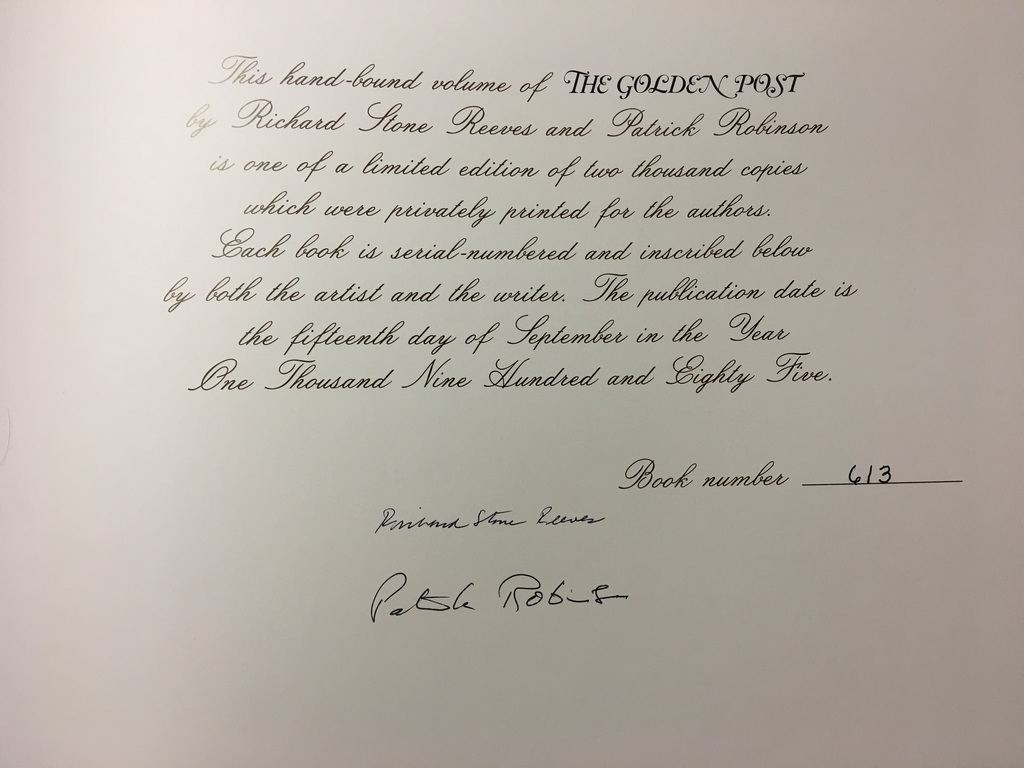 This hand-bound volume of THE GOLDEN POST
by Richard Stone Reeves and Patrick Robinson
is one of a limited edition of two thousand copies
which were privately printed for the authors.
Each book is serial-numbered and inscribed below
by both the artist and the writer. The publication date is
the fifteenth day of September in the Year
One Thousand Nine Hundred and Eighty Five.
Book number 613
Richard Stone Reeves
Patrick Robinson